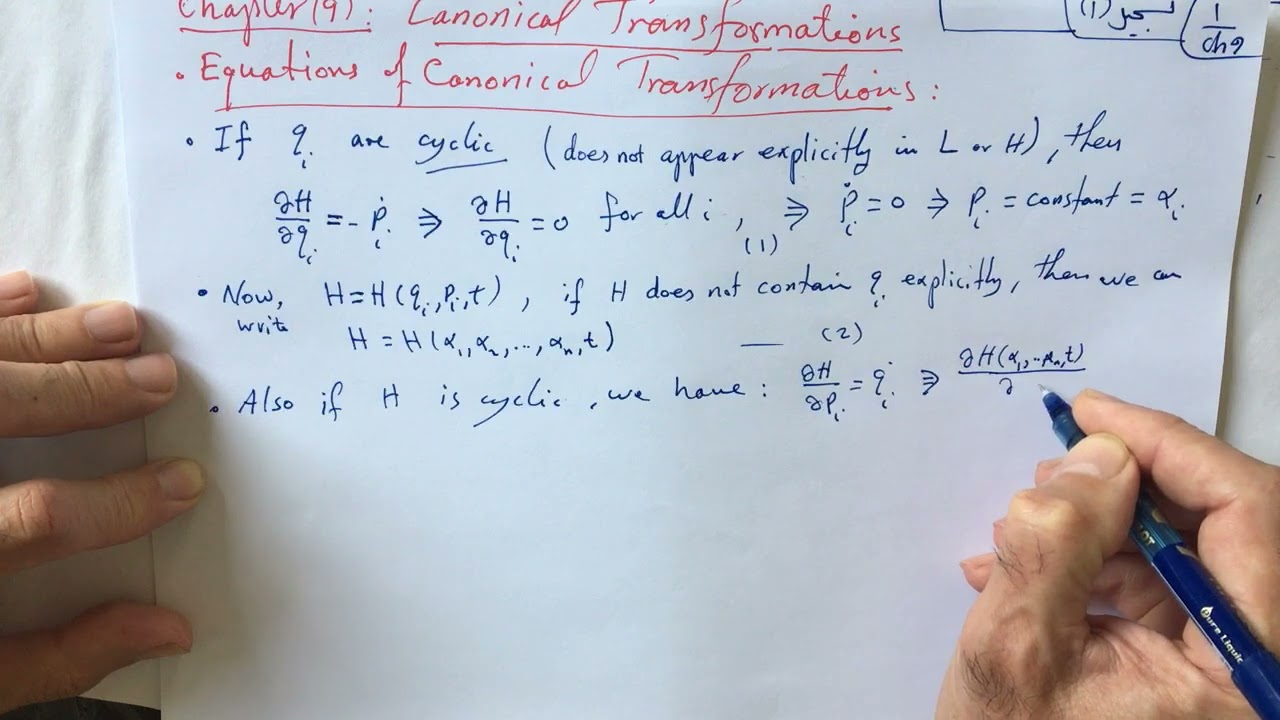 Chapter (9): Canonical Transformations
تسجيل (1)
1/ch9
• Equations of Canonical Transformations:
• If qᵢ are cyclic (does not appear explicitly in L or H), then
∂H/∂qᵢ = - ṗᵢ ⇒ ∂H/∂qᵢ = 0 for all i, ⇒ ṗᵢ = 0 ⇒ pᵢ = constant = αᵢ
(1)
• Now, H = H(qᵢ, pᵢ, t), if H does not contain qᵢ explicitly, then we can
write H = H(α₁, α₂, ..., αₙ, t) — (2)
• Also if H is cyclic, we have: ∂H/∂pᵢ = q̇ᵢ ⇒ ∂H(α₁,..αₙ,t)/∂
Pure Liquid